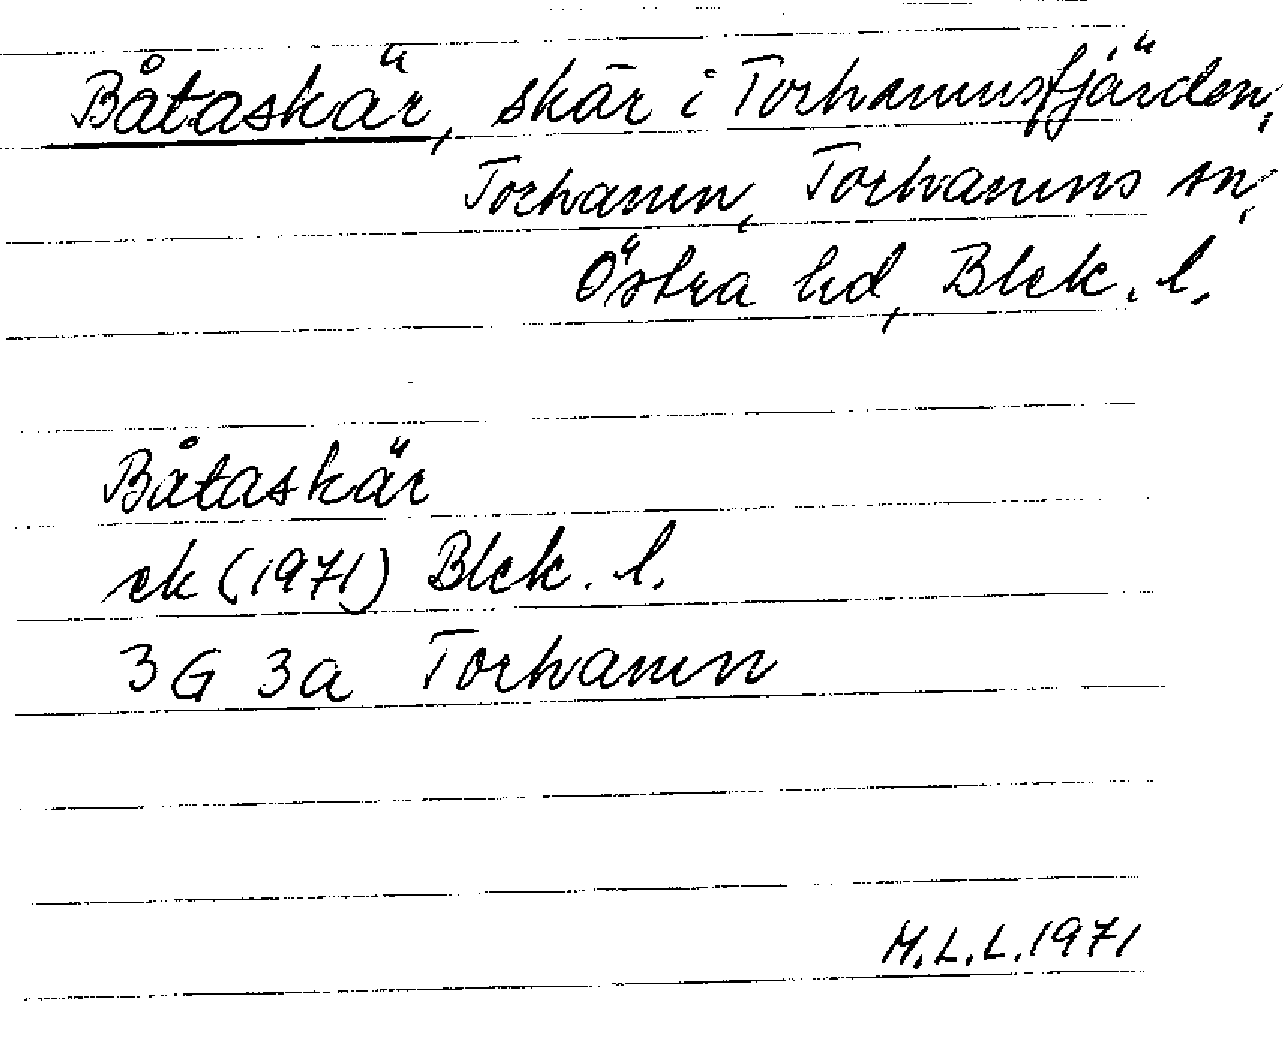 Båtaskär, skär i Torhamnsfjärden,
Torhamn, Torhamns sn,
Östra hd, Blek. l.
Båtaskär
ek (1971) Blek. l.
3G 3a Torhamn
M.L.L. 1971